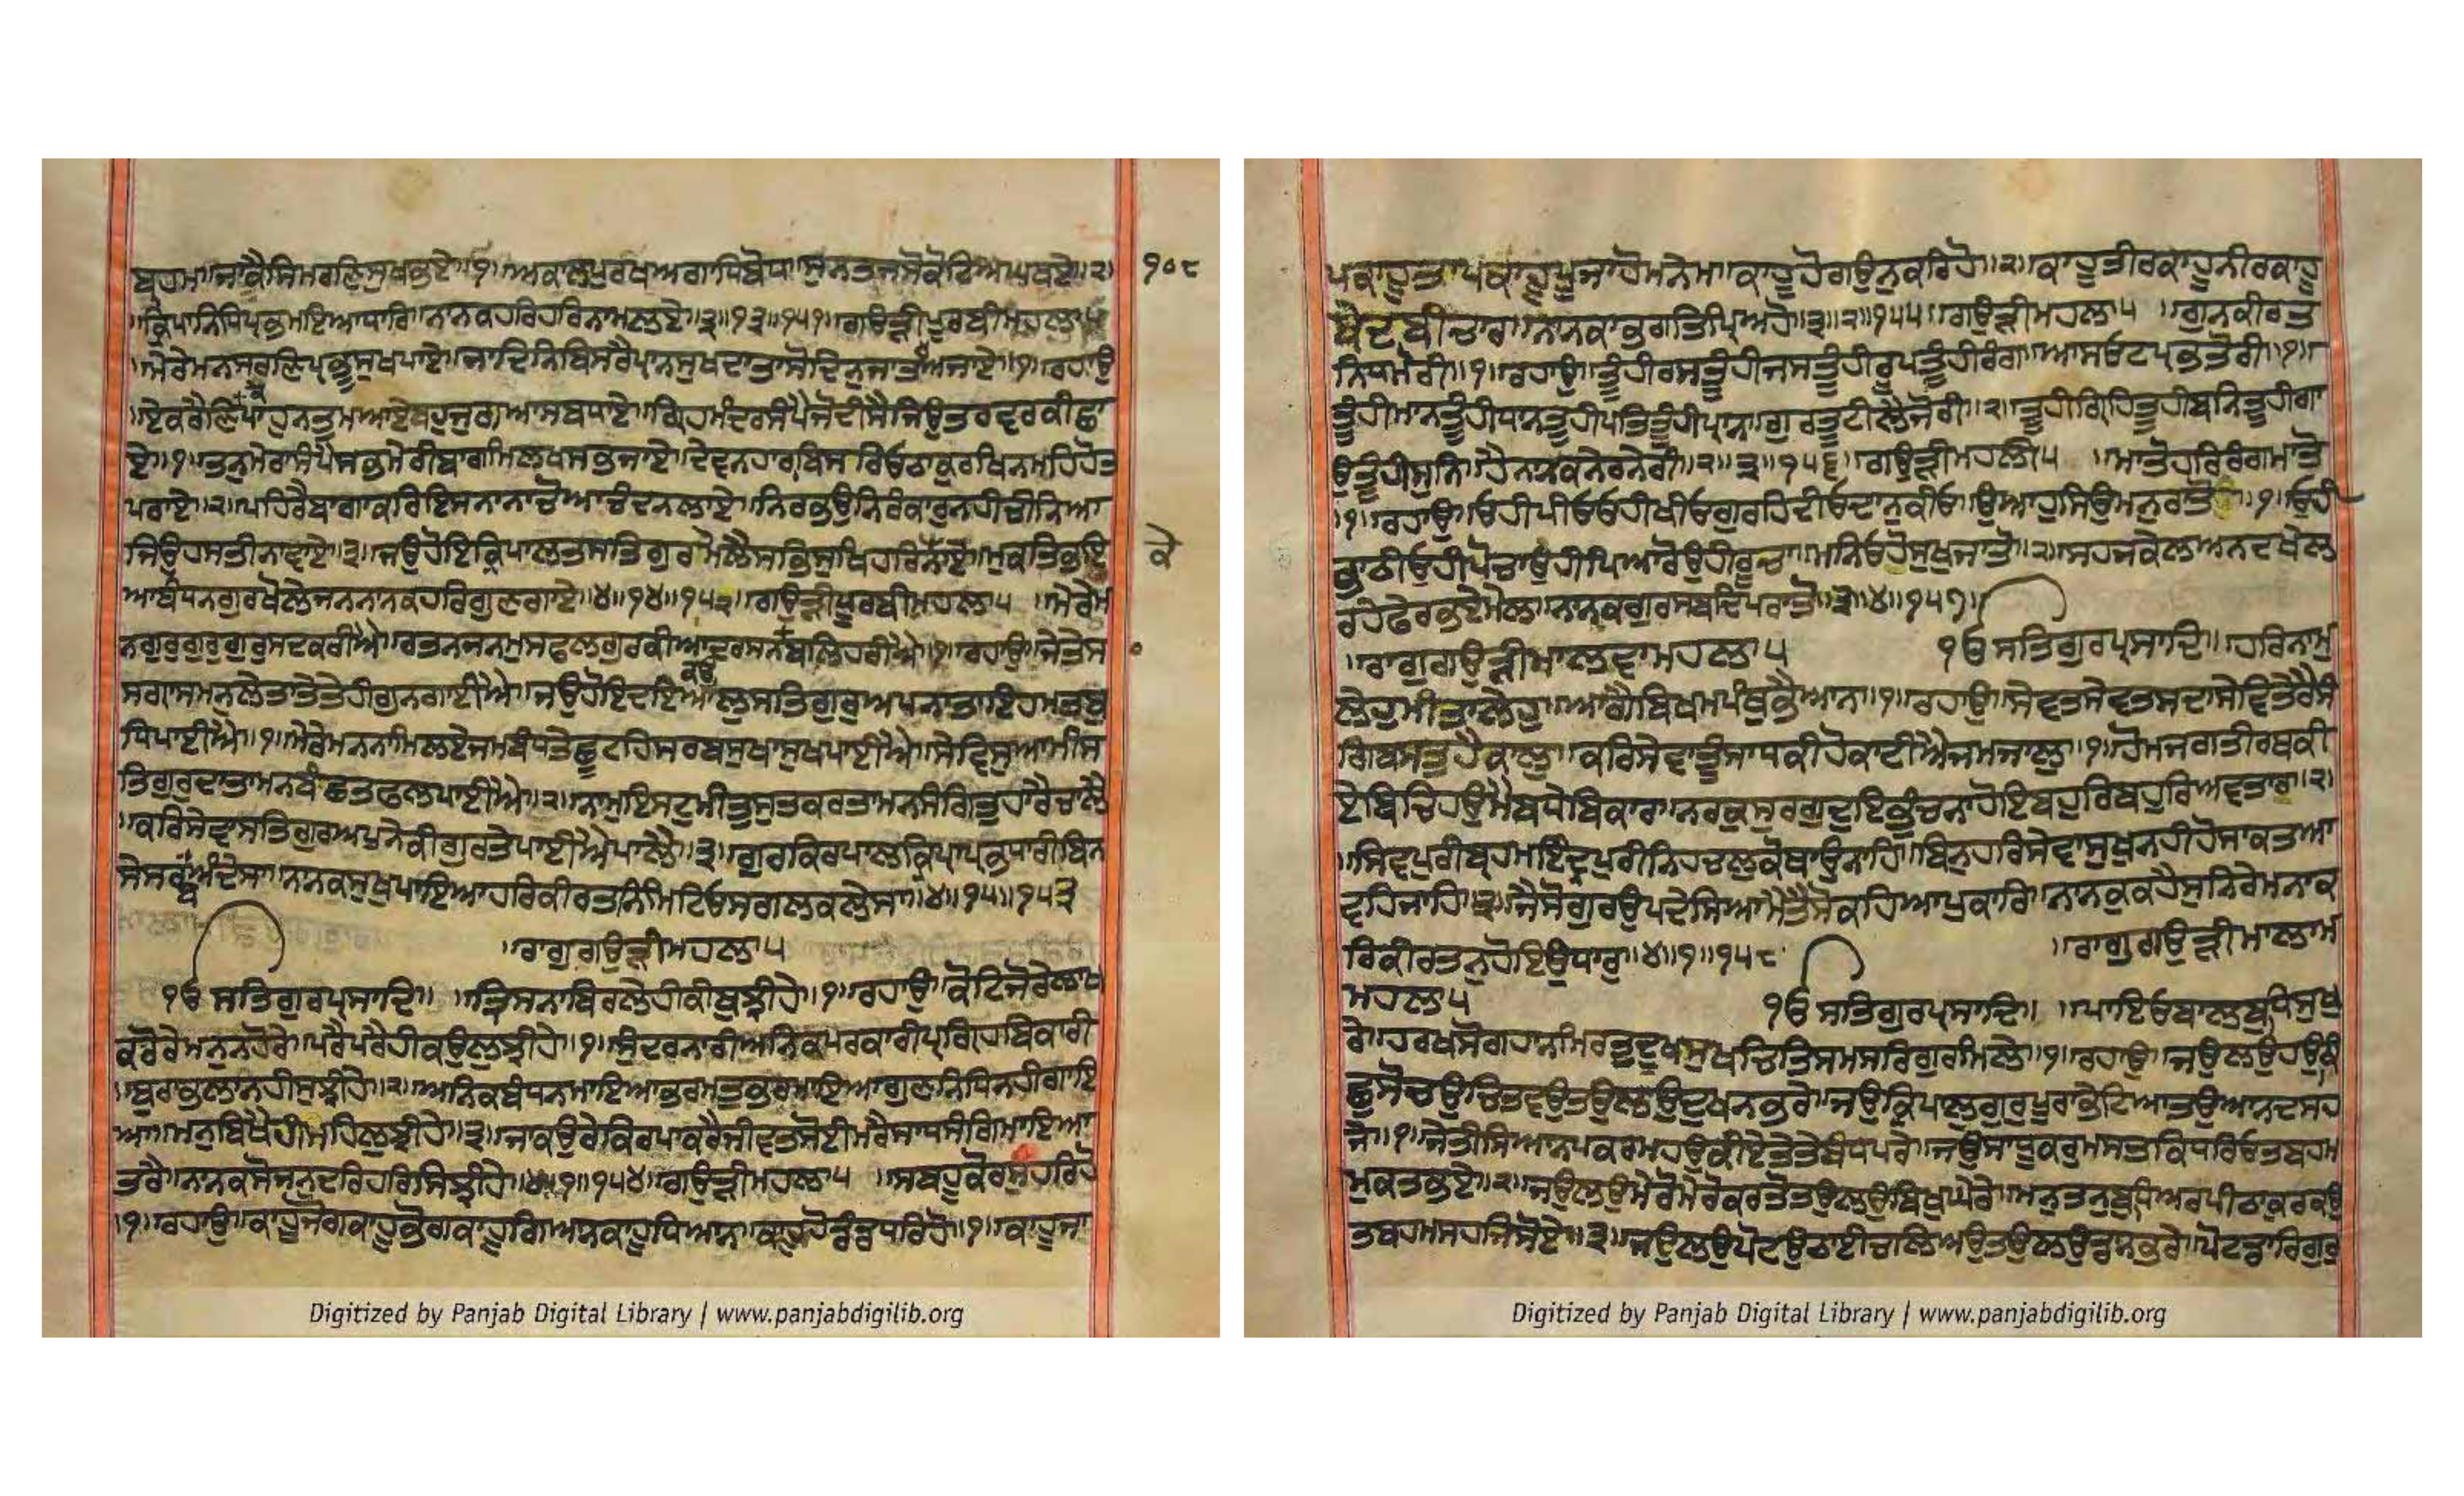 ਬ੍ਰਹਮਾ ਜਾ ਕੈ ਸਿਮਰਣਿ ਸੁਖ ਭਏ ॥੧॥ ਅਕਾਲ ਪੁਰਖ ਅਗਾਧਿ ਬੋਧ ॥ ਸੁਨਤ ਜਸੋ ਕੋਟਿ ਅਘ ਖਏ ॥੨॥
੧੦੮
॥ ਕ੍ਰਿਪਾ ਨਿਧਿ ਪ੍ਰਭ ਮਇਆ ਧਾਰਿ ॥ ਨਾਨਕ ਹਰਿ ਹਰਿ ਨਾਮ ਲਏ ॥੩॥੧੩॥੧੫੧॥ ਗਉੜੀ ਪੂਰਬੀ ਮਹਲਾ ੫
॥ ਮੇਰੇ ਮਨ ਸਰਣਿ ਪ੍ਰਭੂ ਸੁਖ ਪਾਏ ॥ ਜਾ ਦਿਨਿ ਬਿਸਰੈ ਪ੍ਰਾਨ ਸੁਖਦਾਤਾ ਸੋ ਦਿਨੁ ਜਾਤ ਅਜਾਏ ॥੧॥ ਰਹਾਉ
॥ ਏਕ ਰੈਣਿ ਪਾਹੁਨ ਤੁਮ ਆਏ ਬਹੁ ਜੁਗ ਆਸ ਬਧਾਏ ॥ ਗ੍ਰਿਹ ਮੰਦਰ ਸੰਪੈ ਜੋ ਦੀਸੈ ਜਿਉ ਤਰਵਰ ਕੀ ਛਾ
ਏ ॥੧॥ ਤਨੁ ਮੇਰਾ ਸੰਪੈ ਸਭ ਮੇਰੀ ਬਾਗ ਮਿਲਖ ਸਭ ਜਾਏ ॥ ਦੇਵਨਹਾਰਾ ਬਿਸਰਿਓ ਠਾਕੁਰੁ ਖਿਨ ਮਹਿ ਹੋਤ
ਪਰਾਏ ॥੨॥ ਪਹਿਰੈ ਬਾਗਾ ਕਰਿ ਇਸਨਾਨਾ ਚੋਆ ਚੰਦਨ ਲਾਏ ॥ ਨਿਰਭਉ ਨਿਰੰਕਾਰੁ ਨਹੀ ਚੀਨਿਆ
ਜਿਉ ਹਸਤੀ ਨਾਵਾਏ ॥੩॥ ਜਉ ਹੋਇ ਕ੍ਰਿਪਾਲ ਤ ਸਤਿਗੁਰ ਮੇਲੈ ਸਭਿ ਸੁਖ ਹਰਿ ਨਾਏ ॥ ਮੁਕਤਿ ਭਇ
ਕੇ
ਆ ਬੰਧਨ ਗੁਰ ਖੋਲੇ ਜਨ ਨਾਨਕ ਹਰਿ ਗੁਣ ਗਾਏ ॥੪॥੧੪॥੧੫੨॥ ਗਉੜੀ ਪੂਰਬੀ ਮਹਲਾ ੫ ॥ ਮੇਰੇ ਮ
ਨ ਗੁਰੁ ਗੁਰੁ ਗੁਰੁ ਸਦ ਕਰੀਐ ॥ ਰਤਨ ਜਨਮੁ ਸਫਲ ਗੁਰ ਕੀਆ ਦਰਸਨ ਬਲਿਹਰੀਐ ॥੧॥ ਰਹਾਉ ॥ ਜੇਤੇ ਸ
ਸਗ੍ਰਾਸ ਮਨ ਲੇਤਾ ਤੇਤੇ ਹੀ ਗੁਨ ਗਾਈਐ ॥ ਜਉ ਹੋਇ ਦਇਆਲੁ ਸਤਿਗੁਰੁ ਅਪਨਾ ਤਾ ਇਹ ਮਤਿ ਬੁ
ਧਿ ਪਾਈਐ ॥੧॥ ਮੇਰੇ ਮਨ ਨਾਮਿ ਲਏ ਜਮ ਬੰਧ ਤੇ ਛੂਟਹਿ ਸਰਬ ਸੁਖਾ ਸੁਖ ਪਾਈਐ ॥ ਸੇਵਿ ਸੁਆਮੀ ਸ
ਤਿਗੁਰੁ ਦਾਤਾ ਮਨ ਬੰਛਤ ਫਲ ਪਾਈਐ ॥੨॥ ਨਾਮੁ ਇਸਟੁ ਮੀਤ ਸੁਤ ਕਰਤਾ ਮਨ ਸੰਗਿ ਤੁਹਾਰੈ ਚਾਲੈ
॥ ਕਰਿ ਸੇਵਾ ਸਤਿਗੁਰ ਅਪੁਨੇ ਕੀ ਗੁਰ ਤੇ ਪਾਈਐ ਪਾਲੈ ॥੩॥ ਗੁਰ ਕਿਰਪਾਲ ਕ੍ਰਿਪਾ ਪ੍ਰਭ ਧਾਰੀ ਬਿਨ
ਸੇ ਸਰਬ ਅੰਦੇਸਾ ॥ ਨਾਨਕ ਸੁਖੁ ਪਾਇਆ ਹਰਿ ਕੀਰਤਨਿ ਮਿਟਿਓ ਸਗਲ ਕਲੇਸਾ ॥੪॥੧੫॥੧੫੩
॥ ਰਾਗੁ ਗਉੜੀ ਮਹਲਾ ੫
ੴ ਸਤਿਗੁਰ ਪ੍ਰਸਾਦਿ ॥ ॥ ਤ੍ਰਿਸਨਾ ਬਿਰਲੇ ਹੀ ਕੀ ਬੁਝੀ ਹੇ ॥੧॥ ਰਹਾਉ ॥ ਕੋਟਿ ਜੋਰੇ ਲਾਖ
ਕ੍ਰੋਰੇ ਮਨੁ ਨ ਹੋਰੇ ॥ ਪਰੈ ਪਰੈ ਹੀ ਕਉ ਲੁਝੀ ਹੇ ॥੧॥ ਸੁੰਦਰ ਨਾਰੀ ਅਨਿਕ ਪਰਕਾਰੀ ਪਰ ਗ੍ਰਿਹ ਬਿਕਾਰੀ
॥ ਬੁਰਾ ਭਲਾ ਨਹੀ ਸੁਝੀ ਹੇ ॥੨॥ ਅਨਿਕ ਬੰਧਨ ਮਾਇਆ ਭਰਮਤੁ ਭਰਮਾਇਆ ਗੁਣ ਨਿਧਿ ਨਹੀ ਗਾਇ
ਆ ॥ ਮਨ ਬਿਖੈ ਹੀ ਮਹਿ ਲੁਝੀ ਹੇ ॥੩॥ ਜਾ ਕਉ ਰੇ ਕਿਰਪਾ ਕਰੈ ਜੀਵਤ ਸੋਈ ਮਰੈ ਸਾਧਸੰਗਿ ਮਾਇਆ
ਤਰੈ ॥ ਨਾਨਕ ਸੋ ਜਨੁ ਦਰਿ ਹਰਿ ਸਿਝੀ ਹੇ ॥੪॥੧॥੧੫੪॥ ਗਉੜੀ ਮਹਲਾ ੫ ॥ ਸਭਹੂ ਕੋ ਰਸੁ ਹਰਿ ਹੋ
॥੧॥ ਰਹਾਉ ॥ ਕਾਹੂ ਜੋਗ ਕਾਹੂ ਭੋਗ ਕਾਹੂ ਗਿਆਨ ਕਾਹੂ ਧਿਆਨ ॥ ਕਾਹੂ ਹੋ ਡੰਡ ਧਰਿ ਹੋ ॥੧॥ ਕਾਹੂ ਜਾ
ਪ ਕਾਹੂ ਤਾਪ ਕਾਹੂ ਪੂਜਾ ਹੋਮ ਨੇਮ ॥ ਕਾਹੂ ਹੋ ਗਉਨੁ ਕਰਿ ਹੋ ॥੨॥ ਕਾਹੂ ਤੀਰ ਕਾਹੂ ਨੀਰ ਕਾਹੂ
ਬੇਦ ਬੀਚਾਰ ॥ ਨਾਨਕਾ ਭਗਤਿ ਪ੍ਰਿਅ ਹੋ ॥੩॥੨॥੧੫੫॥ ਗਉੜੀ ਮਹਲਾ ੫ ॥ ਗੁਨ ਕੀਰਤਿ
ਨਿਧਿ ਮੋਰੀ ॥੧॥ ਰਹਾਉ ॥ ਤੂੰਹੀ ਰਸ ਤੂੰਹੀ ਜਸ ਤੂੰਹੀ ਰੂਪ ਤੂਹੀ ਰੰਗ ॥ ਆਸ ਓਟ ਪ੍ਰਭ ਤੋਰੀ ॥੧॥
ਤੂੰਹੀ ਮਾਨ ਤੂੰਹੀ ਧਨ ਤੂਹੀ ਪਤਿ ਤੂੰਹੀ ਪ੍ਰਾਨ ॥ ਗੁਰਿ ਤੂਟੀ ਲੈ ਜੋਰੀ ॥੨॥ ਤੂਹੀ ਗ੍ਰਿਹਿ ਤੂਹੀ ਬਨਿ ਤੂਹੀ ਗਾ
ਉ ਤੂਹੀ ਸੁਨਿ ॥ ਹੈ ਨਾਨਕ ਨੇਰ ਨੇਰੀ ॥੩॥੩॥੧੫੬॥ ਗਉੜੀ ਮਹਲਾ ੫ ॥ ਮਾਤੋ ਹਰਿ ਰੰਗਿ ਮਾਤੋ
॥੧॥ ਰਹਾਉ ॥ ਓਹੀ ਪੀਓ ਓਹੀ ਖੀਓ ਗੁਰਹਿ ਦੀਓ ਦਾਨੁ ਕੀਓ ॥ ਉਆਹੂ ਸਿਉ ਮਨੁ ਰਾਤੋ ॥੧॥ ਓਹੀ
ਭਾਠੀ ਓਹੀ ਪੋਚਾ ਓਹੀ ਪਿਆਰੋ ਉਹੀ ਰੂਚਾ ॥ ਮਨਿ ਓਹੋ ਸੁਖੁ ਜਾਤੋ ॥੨॥ ਸਹਜ ਕੇਲ ਅਨਦ ਖੇਲ
ਰਹੇ ਫੇਰ ਭਏ ਮੇਲ ॥ ਨਾਨਕ ਗੁਰ ਸਬਦਿ ਪਰਾਤੋ ॥੩॥੪॥੧੫੭॥
॥ ਰਾਗੁ ਗਉੜੀ ਮਾਲਵਾ ਮਹਲਾ ੫ ੴ ਸਤਿਗੁਰ ਪ੍ਰਸਾਦਿ ॥ ਹਰਿ ਨਾਮੁ
ਲੇਹੁ ਮੀਤਾ ਲੇਹੁ ॥ ਆਗੈ ਬਿਖਮ ਪੰਥੁ ਭੈਆਨ ॥੧॥ ਰਹਾਉ ॥ ਸੇਵਤ ਸੇਵਤ ਸਦਾ ਸੇਵਿ ਤੇਰੈ ਸੰ
ਗਿ ਬਸਤੁ ਹੈ ਕਾਲੁ ॥ ਕਰਿ ਸੇਵਾ ਤੂੰ ਸਾਧ ਕੀ ਹੋ ਕਾਟੀਐ ਜਮ ਜਾਲੁ ॥੧॥ ਹੋਮ ਜਗ ਤੀਰਥ ਕੀ
ਏ ਬਿਚਿ ਹਉਮੈ ਬਧੇ ਬਿਕਾਰ ॥ ਨਰਕੁ ਸੁਰਗੁ ਦੁਇ ਭੁੰਚਨਾ ਹੋਇ ਬਹੁਰਿ ਬਹੁਰਿ ਅਵਤਾਰ ॥੨॥
॥ ਸਿਵ ਪੁਰੀ ਬ੍ਰਹਮ ਇੰਦ੍ਰ ਪੁਰੀ ਨਿਹਚਲੁ ਕੋ ਥਾਉ ਨਾਹਿ ॥ ਬਿਨੁ ਹਰਿ ਸੇਵਾ ਸੁਖੁ ਨਹੀ ਹੋ ਸਾਕਤ ਆ
ਵਹਿ ਜਾਹਿ ॥੩॥ ਜੈਸੋ ਗੁਰਿ ਉਪਦੇਸਿਆ ਮੈ ਤੈਸੋ ਕਹਿਆ ਪੁਕਾਰਿ ॥ ਨਾਨਕੁ ਕਹੈ ਸੁਨਿ ਰੇ ਮਨਾ ਕ
ਰਿ ਕੀਰਤਨੁ ਹੋਇ ਉਧਾਰੁ ॥੪॥੧॥੧੫੮ ॥ ਰਾਗੁ ਗਉੜੀ ਮਾਲਾ ਮ
ਮਹਲਾ ੫ ੴ ਸਤਿਗੁਰ ਪ੍ਰਸਾਦਿ ॥ ॥ ਪਾਇਓ ਬਾਲ ਬੁਧਿ ਸੁਖੁ
ਰੇ ॥ ਹਰਖ ਸੋਗ ਹਾਨਿ ਮਿਰਤੁ ਦੂਖ ਸੁਖ ਚਿਤਿ ਸਮਸਰਿ ਗੁਰ ਮਿਲੇ ॥੧॥ ਰਹਾਉ ॥ ਜਉ ਲਉ ਹਉ ਕਿ
ਛੁ ਸੋਚਉ ਚਿਤਵਉ ਤਉ ਲਉ ਦੁਖਨੁ ਭਰੇ ॥ ਜਉ ਕ੍ਰਿਪਾਲੁ ਗੁਰੁ ਪੂਰਾ ਭੇਟਿਆ ਤਉ ਆਨਦ ਸਹ
ਜੇ ॥੧॥ ਜੇਤੀ ਸਿਆਨਪ ਕਰਮ ਹਉ ਕੀਏ ਤੇਤੇ ਬੰਧ ਪਰੇ ॥ ਜਉ ਸਾਧੂ ਕਰੁ ਮਸਤਕਿ ਧਰਿਓ ਤਬ ਹਮ
ਮੁਕਤ ਭਏ ॥੨॥ ਜਉ ਲਉ ਮੇਰੋ ਮੇਰੋ ਕਰਤੋ ਤਉ ਲਉ ਬਿਖੁ ਘੇਰੇ ॥ ਮਨੁ ਤਨੁ ਬੁਧਿ ਅਰਪੀ ਠਾਕੁਰ ਕਉ
ਤਬ ਹਮ ਸਹਜਿ ਸੋਏ ॥੩॥ ਜਉ ਲਉ ਪੋਟ ਉਠਾਈ ਚਲਿਅਉ ਤਉ ਲਉ ਡਾਨ ਭਰੇ ॥ ਪੋਟ ਡਾਰਿ ਗੁਰੁ
Digitized by Panjab Digital Library | www.panjabdigilib.org
Digitized by Panjab Digital Library | www.panjabdigilib.org